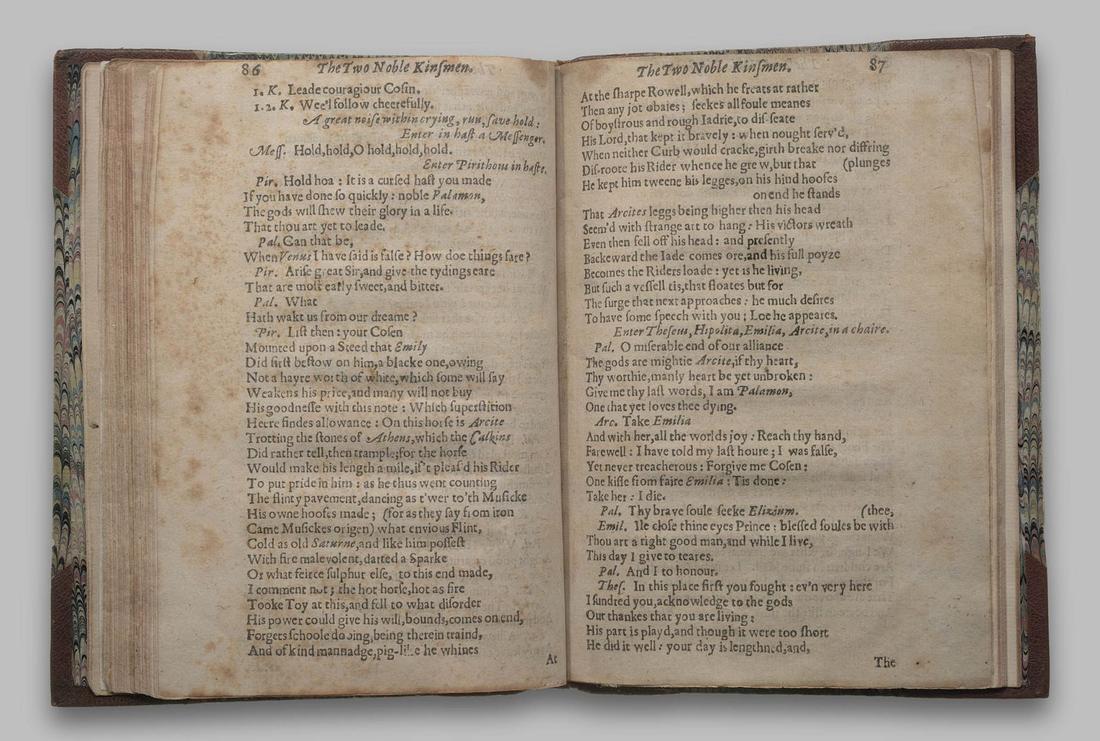 86 The Two Noble Kinſmen.
1. K. Leade couragious Coſin.
1.2. K. Wee'l follow cheerefully.
A great noiſe within crying, run, ſave hold:
Enter in haſt a Meſſenger.
Meſſ. Hold, hold, O hold, hold, hold.
Enter Pirithous in haſte.
Pir. Hold hoa : It is a curſed haſt you made
If you have done ſo quickly : noble Palamon,
The gods will ſhew their glory in a life.
That thou art yet to leade.
Pal. Can that be,
When Venus I have ſaid is falſe ? How doe things fare ?
Pir. Ariſe great Sir, and give the tydings eare
That are moſt early ſweet, and bitter.
Pal. What
Hath wakt us from our dreame ?
Pir. Liſt then : your Coſen
Mounted upon a Steed that Emily
Did firſt beſtow on him, a blacke one, owing
Not a hayre worth of white, which ſome will ſay
Weakens his price, and many will not buy
His goodneſſe with this note : Which ſuperſtition
Heere findes allowance : On this horſe is Arcite
Trotting the ſtones of Athens, which the Calkins
Did rather tell, then trample; for the horſe
Would make his length a mile, if't pleaſ'd his Rider
To put pride in him : as he thus went counting
The flinty pavement, dancing as t'wer to'th Muſicke
His owne hoofes made ; (for as they ſay from iron
Came Muſickes origen) what envious Flint,
Cold as old Saturne, and like him poſſeſt
With fire malevolent, darted a Sparke
Or what feirce ſulphur elſe, to this end made,
I comment not ; the hot horſe, hot as fire
Tooke Toy at this, and fell to what diſorder
His power could give his will, bounds, comes on end,
Forgets ſchoole dooing, being therein traind,
And of kind mannadge, pig-like he whines
At
The Two Noble Kinſmen. 87
At the ſharpe Rowell, which he freats at rather
Then any jot obaies ; ſeekes all foule meanes
Of boyſtrous and rough Iadrie, to diſ-ſeate
His Lord, that kept it bravely : when nought ſerv'd,
When neither Curb would cracke, girth breake nor diffring
Diſ-roote his Rider whence he grew, but that (plunges
He kept him tweene his legges, on his hind hoofes
on end he ſtands
That Arcites leggs being higher then his head
Seem'd with ſtrange art to hang : His victors wreath
Even then fell off his head : and preſently
Backeward the Iade comes ore, and his full poyze
Becomes the Riders loade : yet is he living,
But ſuch a veſſell tis, that floates but for
The ſurge that next approaches : he much deſires
To have ſome ſpeech with you ; Loe he appeares.
Enter Theſeus, Hipolita, Emilia, Arcite, in a chaire.
Pal. O miſerable end of our alliance
The gods are mightie Arcite, if thy heart,
Thy worthie, manly heart be yet unbroken :
Give me thy laſt words, I am Palamon,
One that yet loves thee dying.
Arc. Take Emilia
And with her, all the worlds joy : Reach thy hand,
Farewell : I have told my laſt houre ; I was falſe,
Yet never treacherous : Forgive me Coſen :
One kiſſe from faire Emilia : Tis done :
Take her : I die.
Pal. Thy brave ſoule ſeeke Elizium. (thee,
Emil. Ile cloſe thine eyes Prince : bleſſed ſoules be with
Thou art a right good man, and while I live,
This day I give to teares.
Pal. And I to honour.
Theſ. In this place firſt you fought : ev'n very here
I ſundred you, acknowledge to the gods
Our thankes that you are living :
His part is playd, and though it were too ſhort
He did it well : your day is lengthned, and,
The